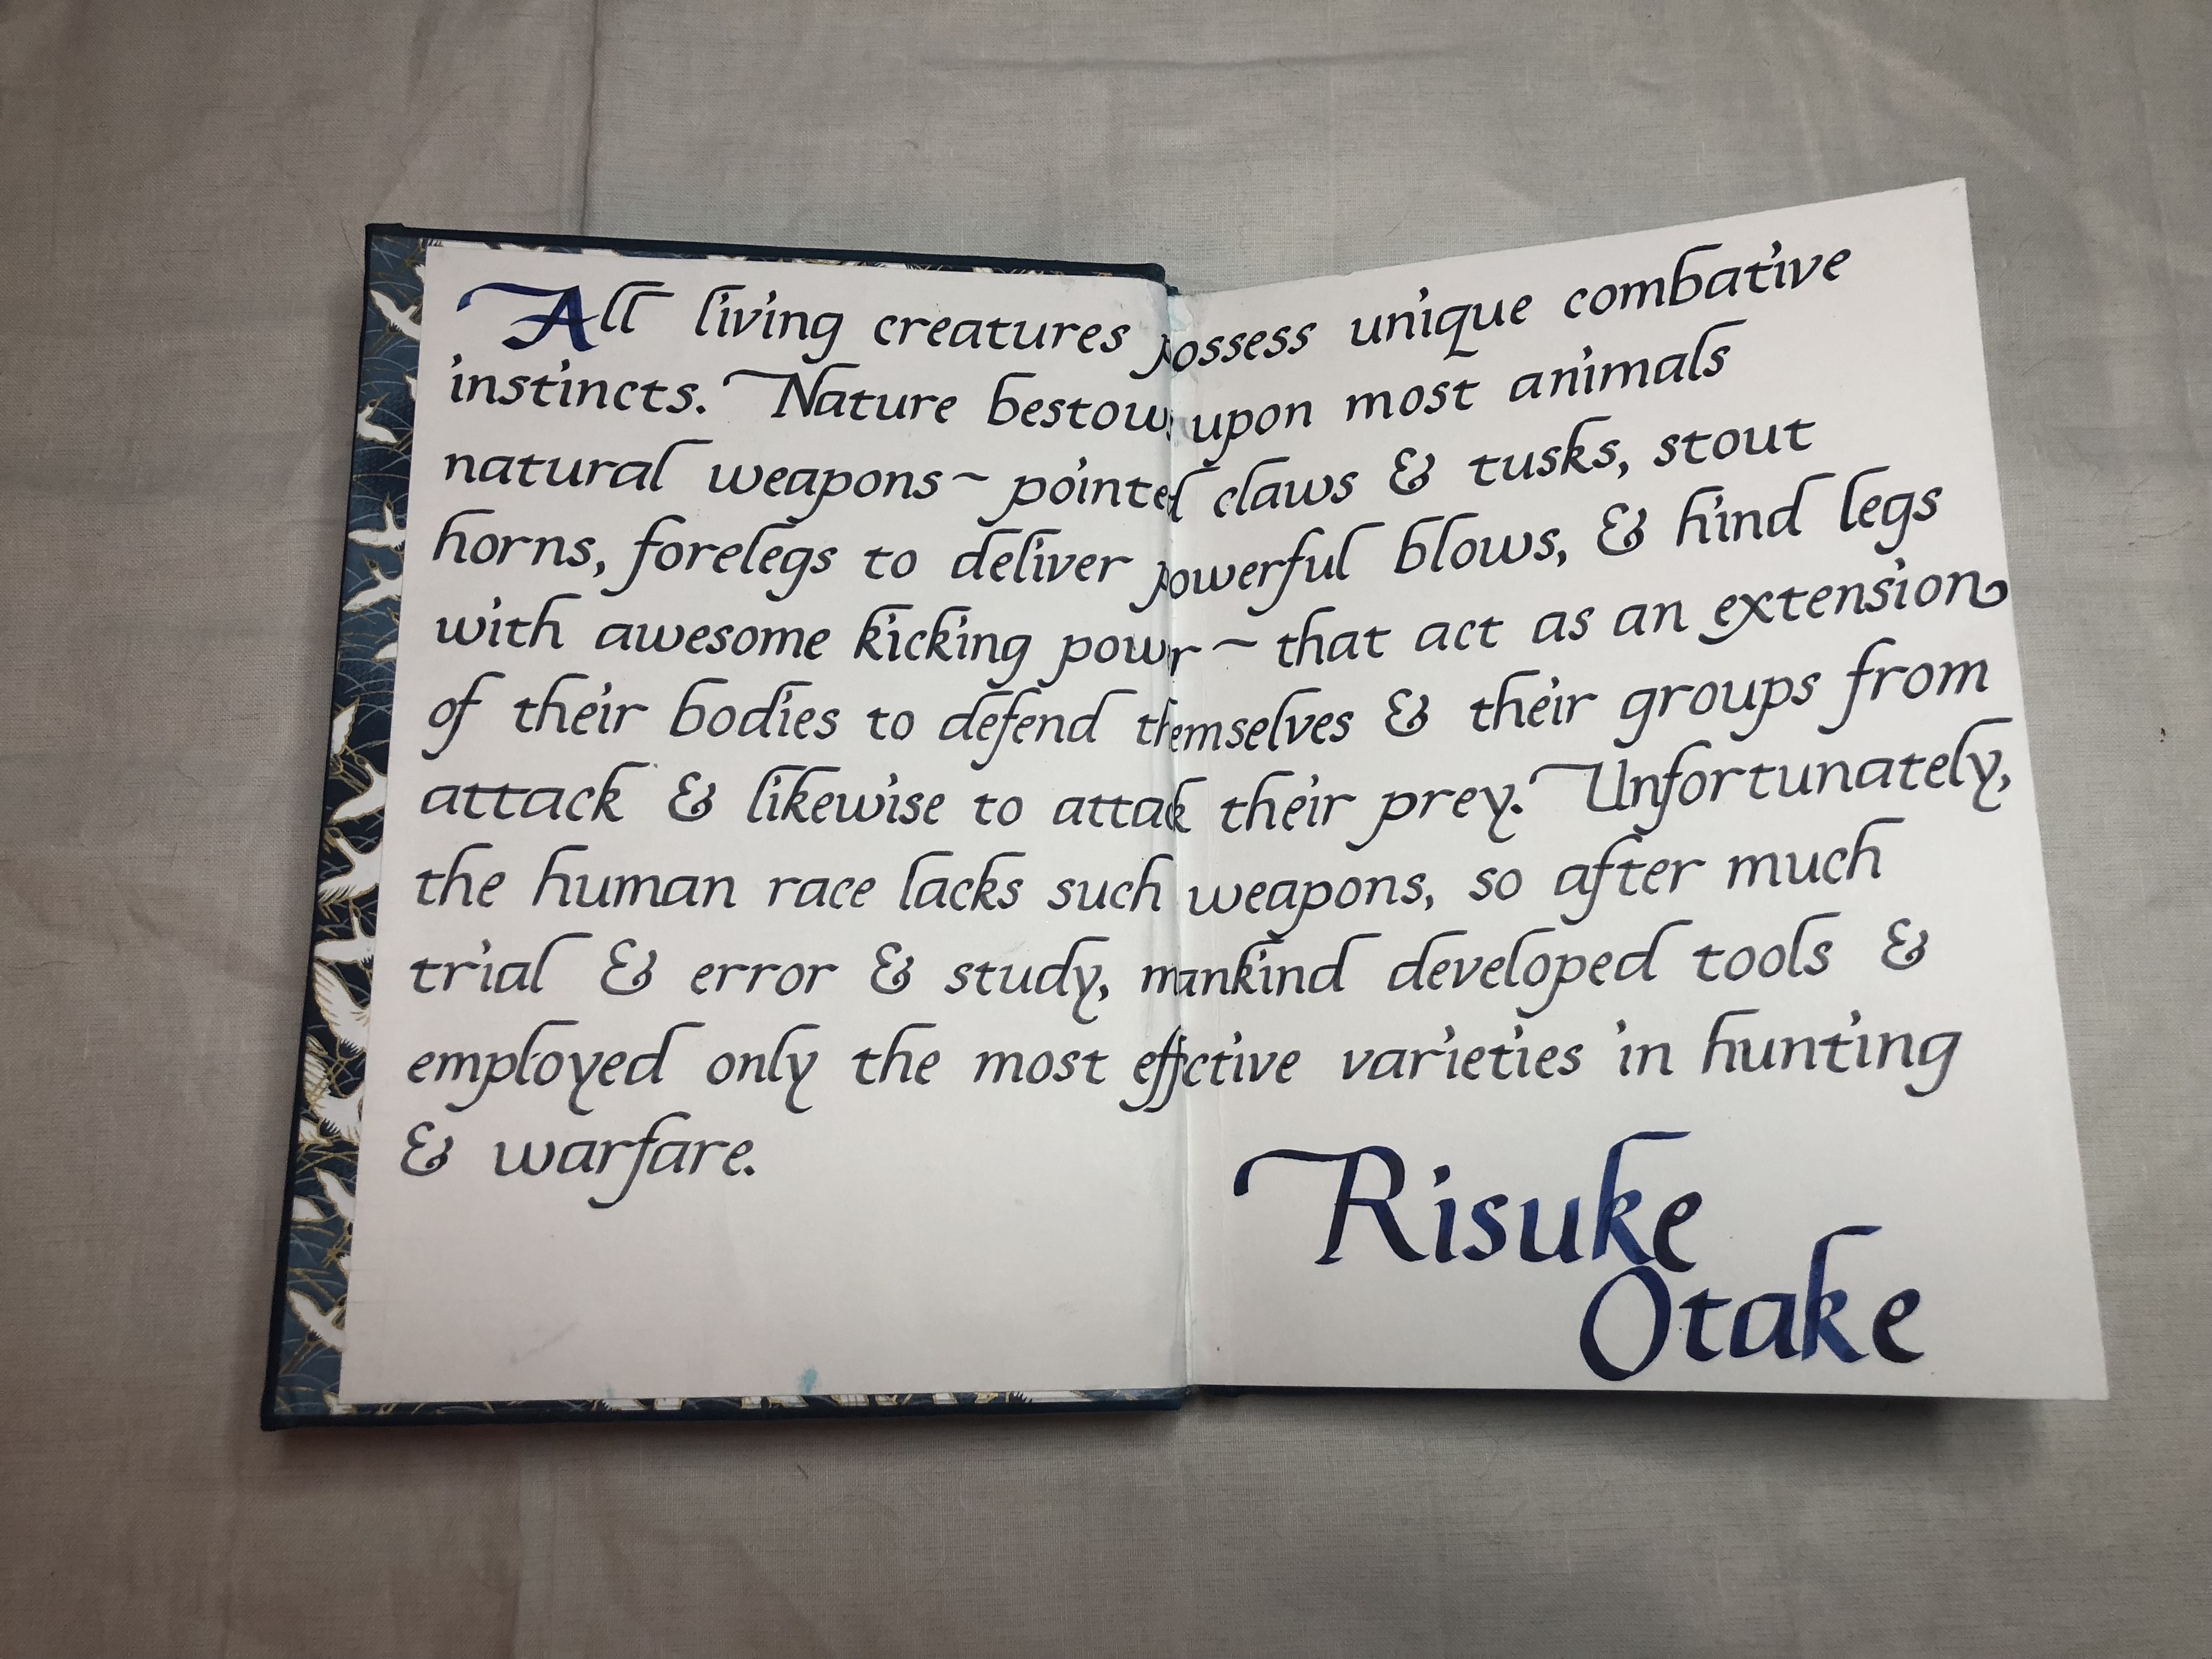 All living creatures possess unique combative
instincts. Nature bestows upon most animals
natural weapons ~ pointed claws & tusks, stout
horns, forelegs to deliver powerful blows, & hind legs
with awesome kicking power ~ that act as an extension
of their bodies to defend themselves & their groups from
attack & likewise to attack their prey. Unfortunately,
the human race lacks such weapons, so after much
trial & error & study, mankind developed tools &
employed only the most effective varieties in hunting
& warfare.
Risuke
Otake